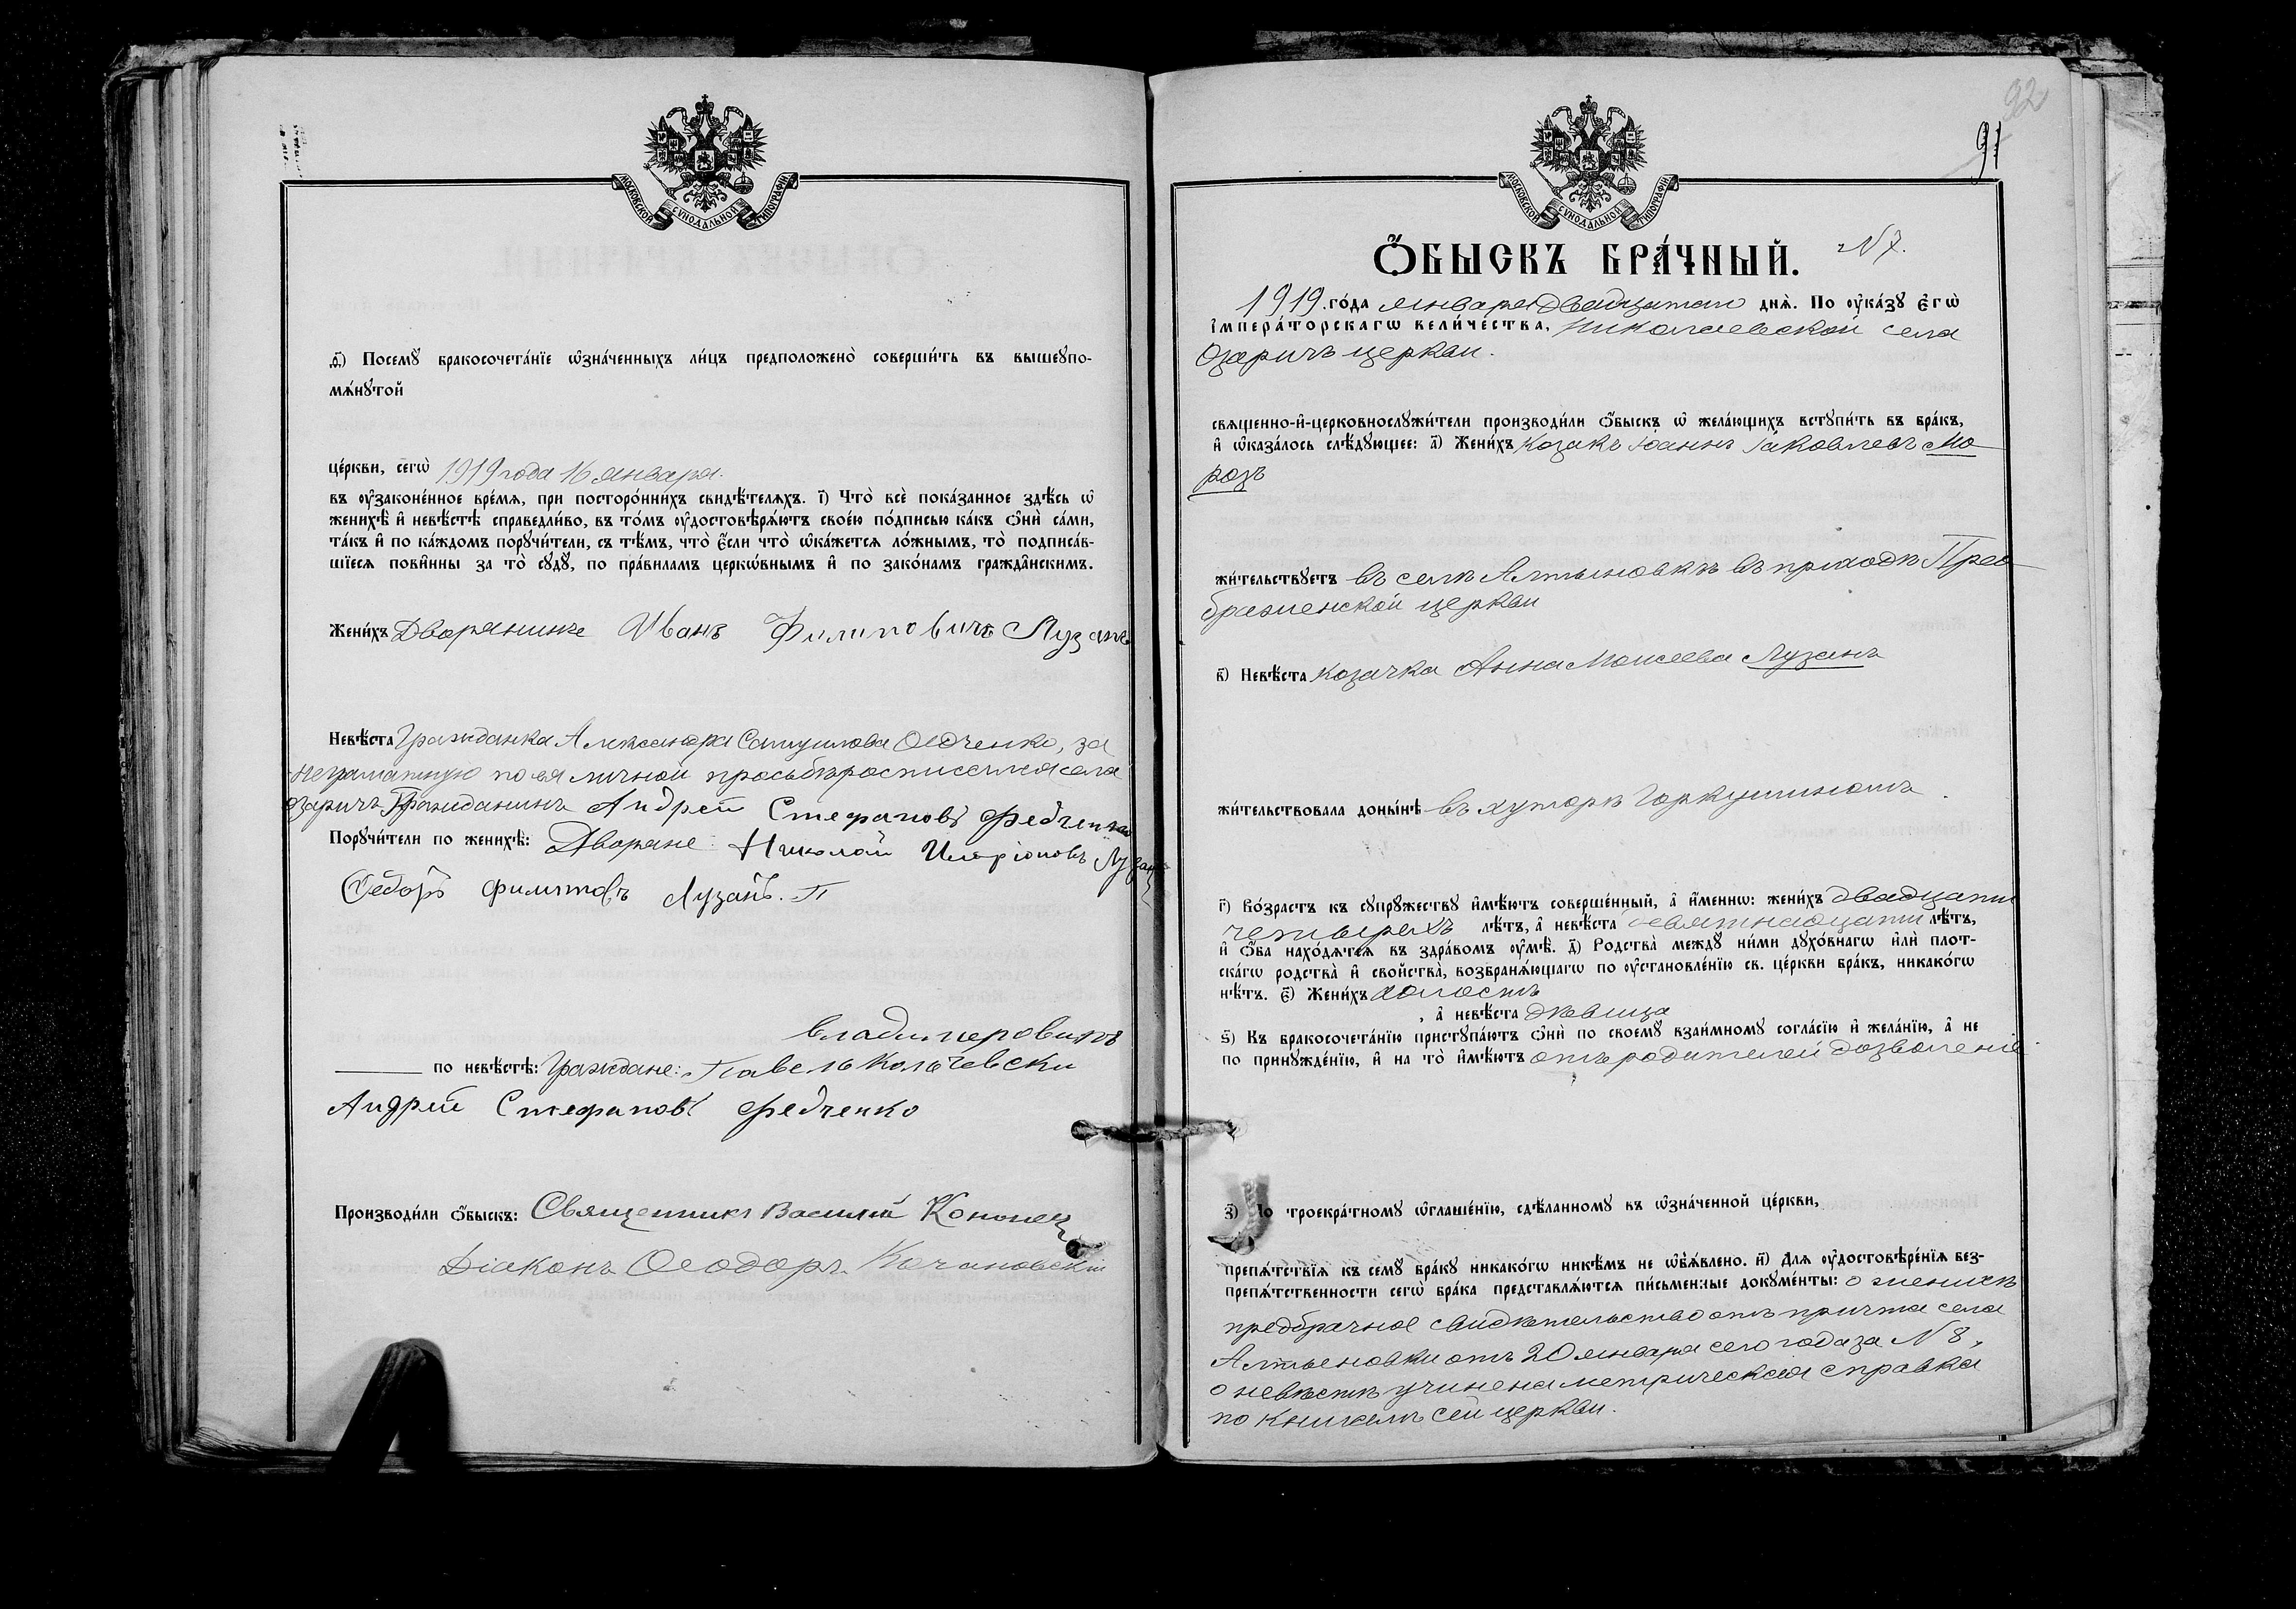 МОСКОВСКОЙ СѴНОДАЛЬНОЙ ТИПОГРАФІИ
ѳ҃) Посемꙋ̀ бракосочета́нїе ѡ҆зна́ченныхъ ли́цъ предположено̀ соверши́ть въ вышеꙋпо-
мѧ́нꙋтой
це́ркви, сегѡ̀ 1919 года 16 января.
въ ᲂу҆законе́нное вре́мѧ, при посторо́ннихъ свидѣ́телѧхъ. і҃) Что̀ всѐ пока́занное здѣ́сь ѡ҆
женихѣ̀ и҆ невѣ́стѣ справедли́во, въ то́мъ ᲂу҆достовѣрѧ́ютъ свое́ю по́дписью ка́къ ѻ҆нѝ са́ми,
та́къ и҆ по ка́ждомъ порꙋчи́тели, съ тѣ́мъ, что̀ є҆́сли что̀ ѡ҆ка́жетсѧ ло́жнымъ, то̀ подписа́в-
шїесѧ пови́нны за то̀ сꙋдꙋ̀, по пра́виламъ церкѡ́внымъ и҆ по зако́намъ гражда́нскимъ.
Жени́хъ Дворянинъ Иванъ Филиповичъ Лузанъ
Невѣ́ста Гражданка Александра Самуилова Ѳедченко, за
неграматную по ея личной просьбѣ росписался села
Озаричъ Гражданинъ Андрей Стефановъ Федченко
Порꙋчи́тели по женихѣ̀: Дворяне: Николай Иларіоновъ Лузанъ
Ѳедоръ Филиповъ Лузанъ.
Владимеровичъ
по невѣ́стѣ: Граждане: Павелъ Кольчевски
Андрей Стефановъ Федченко
Производи́ли ѻ҆́быскъ: Священникъ Василій Кононец
Діаконъ Ѳеодоръ Качановскій
92
91
МОСКОВСКОЙ СѴНОДАЛЬНОЙ ТИПОГРАФІИ
Ѻ҆́БЫСКЪ БРА́ЧНЫЙ. N 7.
1919 го́да января двадцатаго днѧ̀. По ᲂу҆ка́зꙋ є҆гѡ̀
і҆мпера́торскагѡ вели́чества, Николаевской села
Озаричъ церкви.
свѧщенно-и҆-церковнослꙋжи́тели производи́ли ѻ҆́быскъ ѡ҆ жела́ющихъ встꙋпи́ть въ бра́къ,
и҆ ѡ҆каза́лось слѣ́дꙋющее: а҃) Жени́хъ Козакъ Іоаннъ Іаковлевъ Мо-
розъ
жи́тельствꙋетъ въ селѣ Алтыновкѣ въ приходѣ Прео-
браженской церкви
в҃) Невѣ́ста козачка Анна Моисеева Лузанъ
жи́тельствовала доны́нѣ въ хуторѣ Горкушиномъ.
г҃) Во́зрастъ къ сꙋпрꙋ́жествꙋ и҆мѣ́ютъ соверше́нный, а҆ и҆́меннѡ: жени́хъ двадцати
четырехъ лѣ́тъ, а҆ невѣ́ста девятнадцати лѣ́тъ,
и҆ ѻ҆́ба нахо́дѧтсѧ въ здра́вомъ ᲂу҆мѣ̀. д҃) Родства̀ междꙋ̀ ни́ми дꙋхо́внагѡ и҆лѝ плот-
ска́гѡ родства̀ и҆ свойства̀, возбранѧ́ющагѡ по ᲂу҆становле́нїю св. це́ркви бра́къ, никако́гѡ
нѣ́тъ. є҃) Жени́хъ холостъ
, а҆ невѣ́ста дѣвица
ѕ҃) Къ бракосочета́нїю пристꙋпа́ютъ ѻ҆нѝ по своемꙋ̀ взаи́мномꙋ согла́сїю и҆ жела́нїю, а҆ не
по принꙋжде́нїю, и҆ на то̀ и҆мѣ́ютъ отъ родителей дозволеніе
з҃) По троекра́тномꙋ ѡ҆глаше́нїю, сдѣ́ланномꙋ въ ѡ҆зна́ченной це́ркви,
препѧ́тствїѧ къ семꙋ̀ бра́кꙋ никако́гѡ никѣ́мъ не ѡ҆б̾ѧ́влено. и҃) Длѧ ᲂу҆достовѣре́нїѧ без-
препѧ́тственности сегѡ̀ бра́ка представлѧ́ютсѧ пи́сьменные докꙋме́нты: о женихѣ
предбрачное свидѣтельство отъ причта села
Алтыновки отъ 20 января сего года за N 8,
о невѣстѣ учинена метрическая справка
по книгамъ сей церкви.